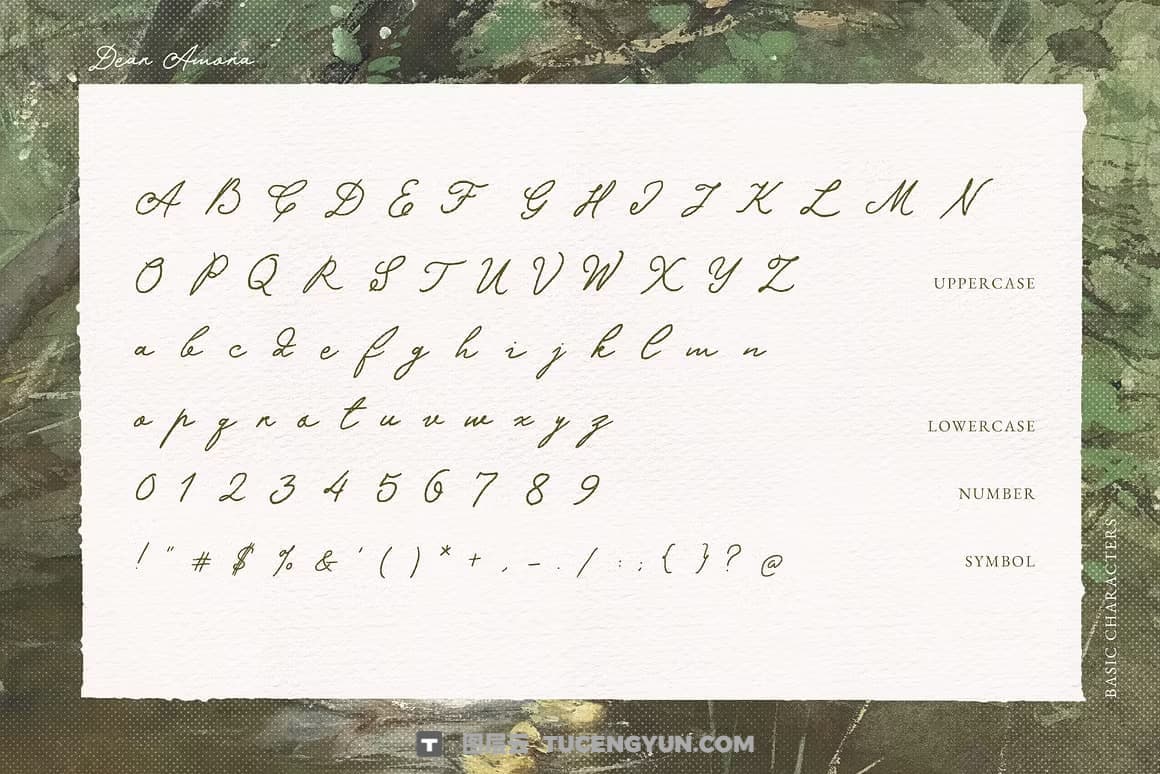 Dear Amora
A B C D E F G H I J K L M N
O P Q R S T U V W X Y Z
UPPERCASE
a b c d e f g h i j k l m n
o p q r s t u v w x y z
LOWERCASE
0 1 2 3 4 5 6 7 8 9
NUMBER
! " # $ % & ' ( ) * + , - . / : ; { } ? @
SYMBOL
BASIC CHARACTERS
T 图层云 TUCENGYUN.COM